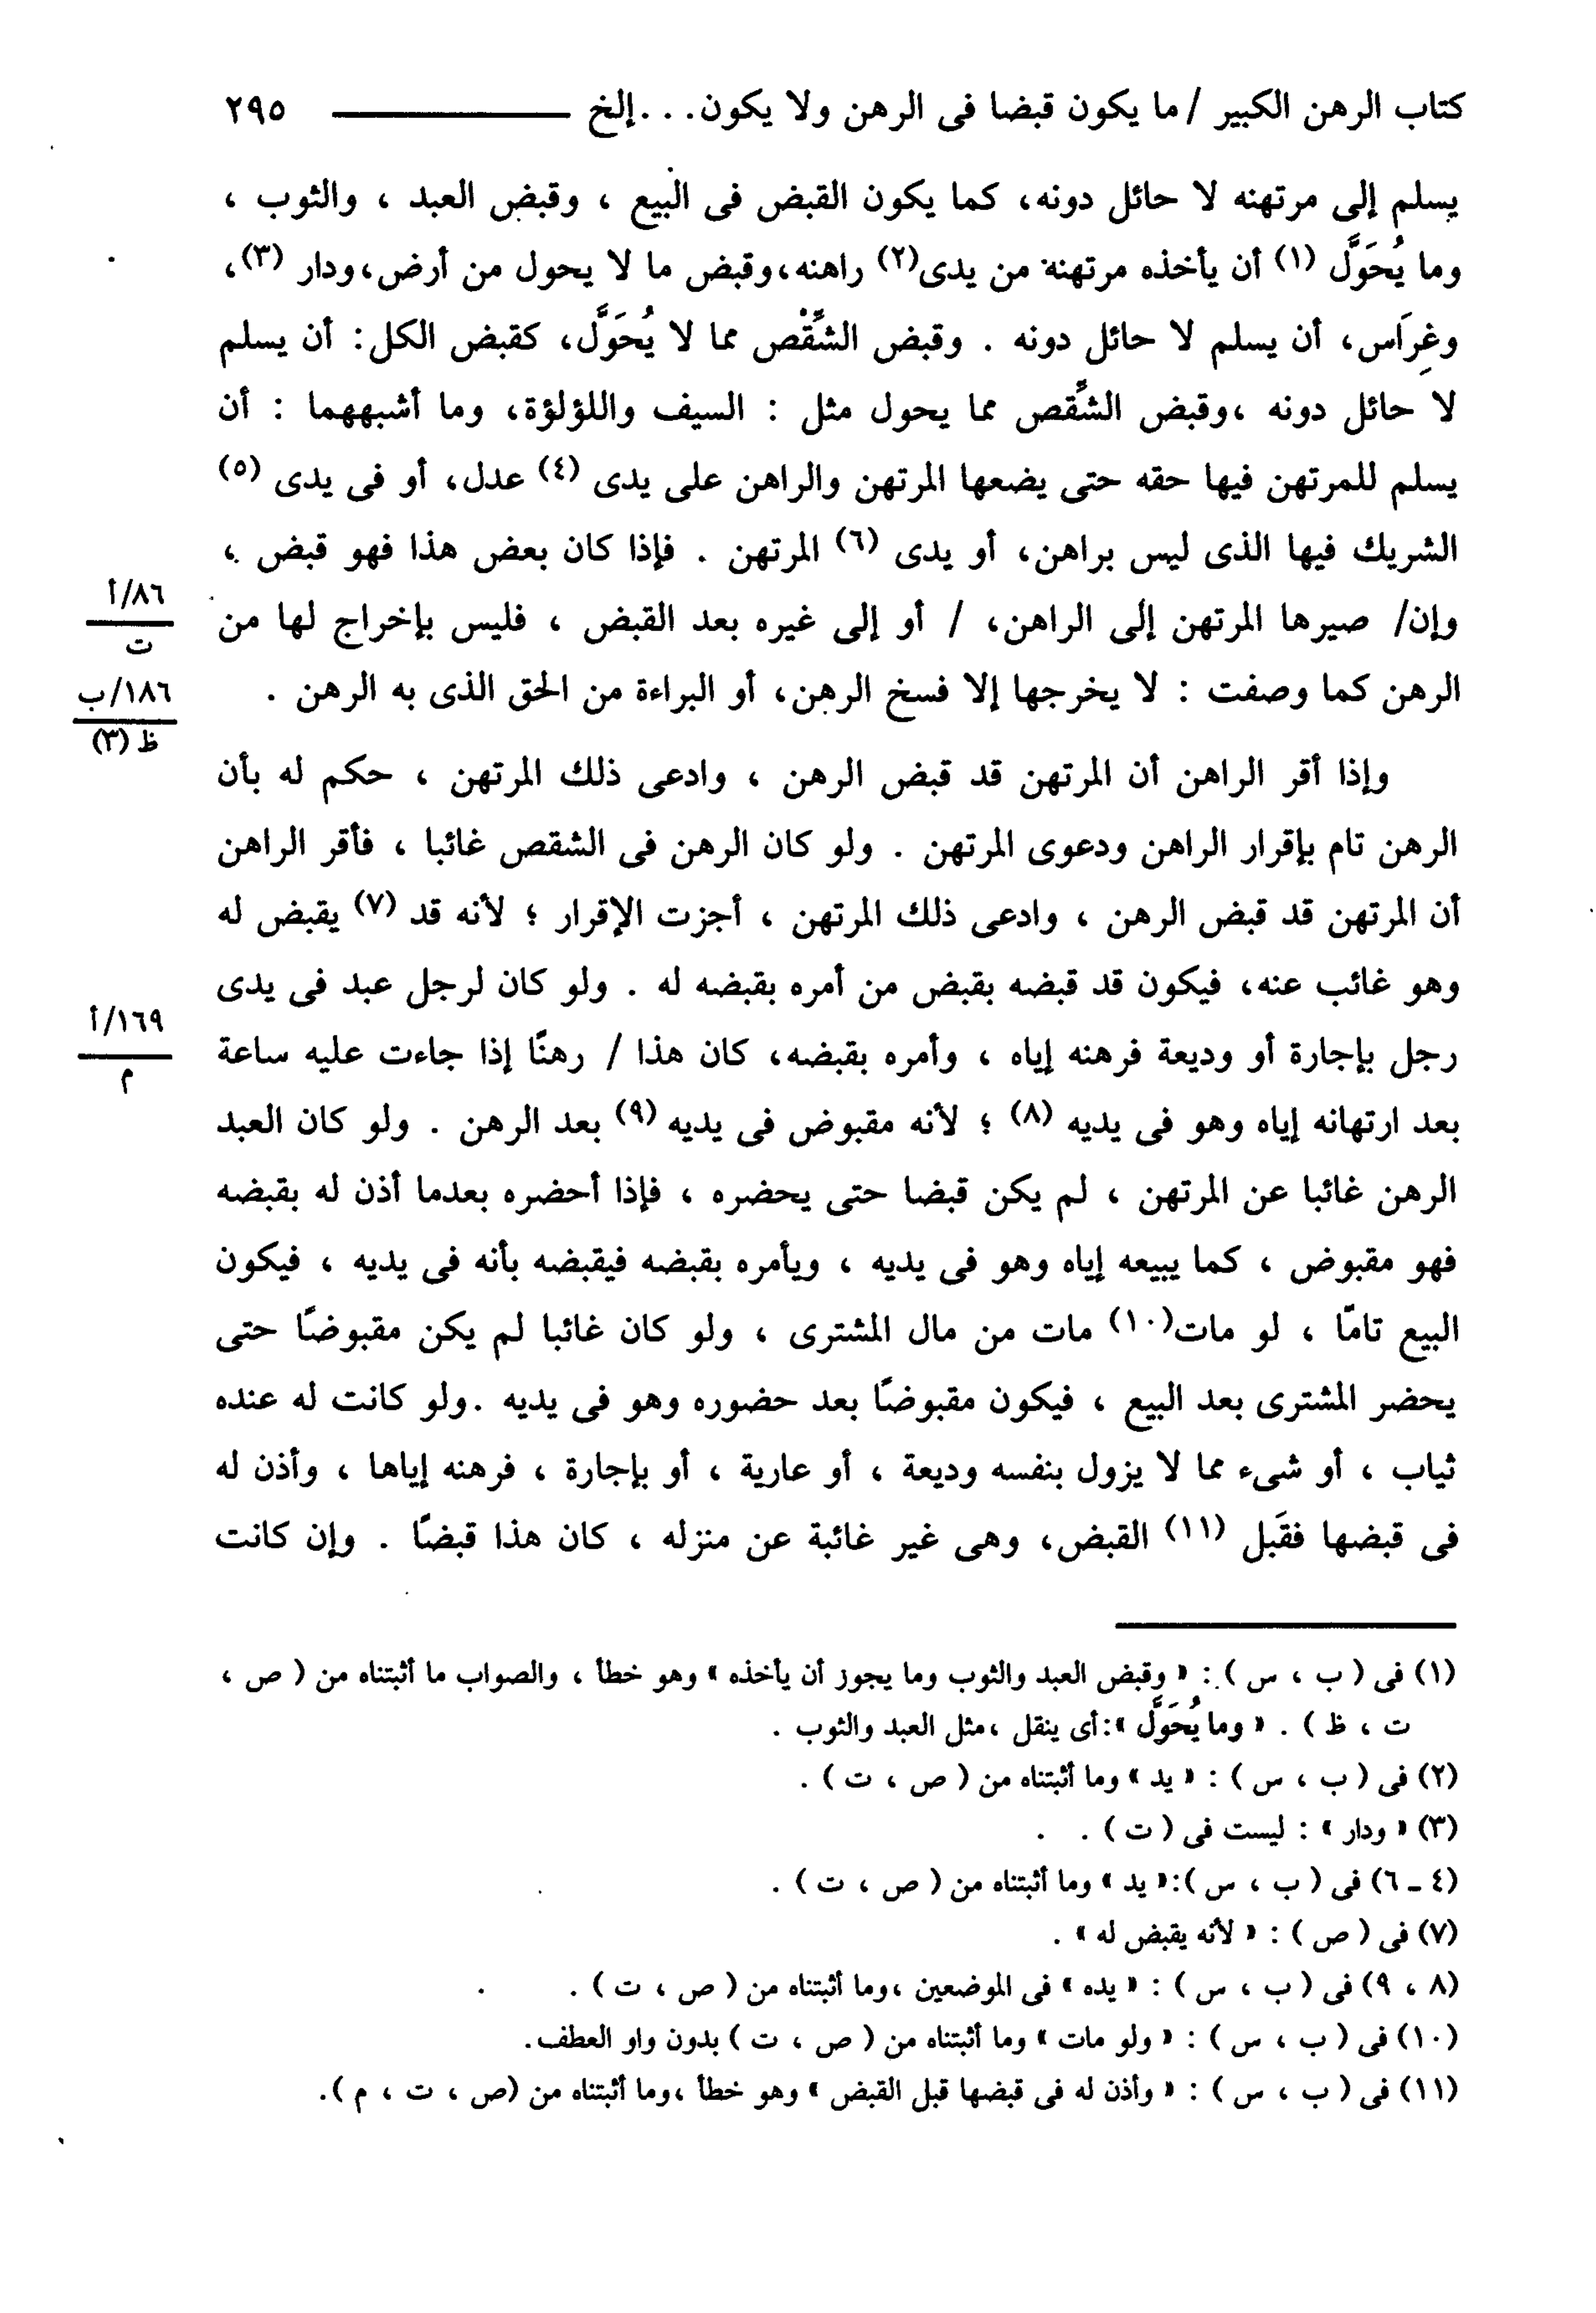 كتاب الرهن الكبير / ما يكون قبضا فى الرهن ولا يكون . . . إلخ ــــــــــ ٢٩٥
يسلم إلى مرتهنه لا حائل دونه، كما يكون القبض فى البيع ، وقبض العبد ، والثوب ،
وما يُحَوَّل (١) أن يأخذه مرتهنه من يدى(٢) راهنه،وقبض ما لا يحول من أرض،ودار (٣)،
وغِرَاس، أن يسلم لا حائل دونه . وقبض الشِّقْص مما لا يُحَوَّل، كقبض الكل: أن يسلم
لا حائل دونه ،وقبض الشِّقص مما يحول مثل : السيف واللؤلؤة، وما أشبههما : أن
يسلم للمرتهن فيها حقه حتى يضعها المرتهن والراهن على يدى (٤) عدل، أو فى يدى (٥)
الشريك فيها الذى ليس براهن، أو يدى (٦) المرتهن . فإذا كان بعض هذا فهو قبض ،
٨٦/أ
ت
وإن/ صيرها المرتهن إلى الراهن، / أو إلى غيره بعد القبض ، فليس بإخراج لها من
١٨٦/ب
ظ (٣)
الرهن كما وصفت : لا يخرجها إلا فسخ الرهن، أو البراءة من الحق الذى به الرهن .
وإذا أقر الراهن أن المرتهن قد قبض الرهن ، وادعى ذلك المرتهن ، حكم له بأن
الرهن تام بإقرار الراهن ودعوى المرتهن . ولو كان الرهن فى الشقص غائبا ، فأقر الراهن
أن المرتهن قد قبض الرهن ، وادعى ذلك المرتهن ، أجزت الإقرار ؛ لأنه قد (٧) يقبض له
وهو غائب عنه، فيكون قد قبضه بقبض من أمره بقبضه له . ولو كان لرجل عبد فى يدى
١٦٩/أ
م
رجل بإجارة أو وديعة فرهنه إياه ، وأمره بقبضه، كان هذا / رهنًا إذا جاءت عليه ساعة
بعد ارتهانه إياه وهو فى يديه (٨) ؛ لأنه مقبوض فى يديه (٩) بعد الرهن . ولو كان العبد
الرهن غائبا عن المرتهن ، لم يكن قبضا حتى يحضره ، فإذا أحضره بعدما أذن له بقبضه
فهو مقبوض ، كما يبيعه إياه وهو فى يديه ، ويأمره بقبضه فيقبضه بأنه فى يديه ، فيكون
البيع تامًا ، لو مات(١٠) مات من مال المشترى ، ولو كان غائبا لم يكن مقبوضًا حتى
يحضر المشترى بعد البيع ، فيكون مقبوضًا بعد حضوره وهو فى يديه .ولو كانت له عنده
ثياب ، أو شىء مما لا يزول بنفسه وديعة ، أو عارية ، أو بإجارة ، فرهنه إياها ، وأذن له
فى قبضها فقَبل (١١) القبض، وهى غير غائبة عن منزله ، كان هذا قبضًا . وإن كانت
(١) فى ( ب ، س ) : « وقبض العبد والثوب وما يجوز أن يأخذه » وهو خطأ ، والصواب ما أثبتناه من ( ص ،
ت ، ظ ) . « وما يُحَوَّل »:أى ينقل ،مثل العبد والثوب .
(٢) فى ( ب ، س ) : « يد » وما أثبتناه من ( ص ، ت ) .
(٣) « ودار » : ليست فى ( ت ) .
(٤ ـ ٦) فى ( ب ، س ):« يد » وما أثبتناه من ( ص ، ت ) .
(٧) فى ( ص ) : « لأنه يقبض له » .
(٨ ، ٩) فى ( ب ، س ) : « يده » فى الموضعين ،وما أثبتناه من ( ص ، ت ) .
(١٠) فى ( ب ، س ) : « ولو مات » وما أثبتناه من ( ص ، ت ) بدون واو العطف.
(١١) فى ( ب ، س ) : « وأذن له فى قبضها قبل القبض » وهو خطأ ،وما أثبتناه من (ص ، ت ، م ).